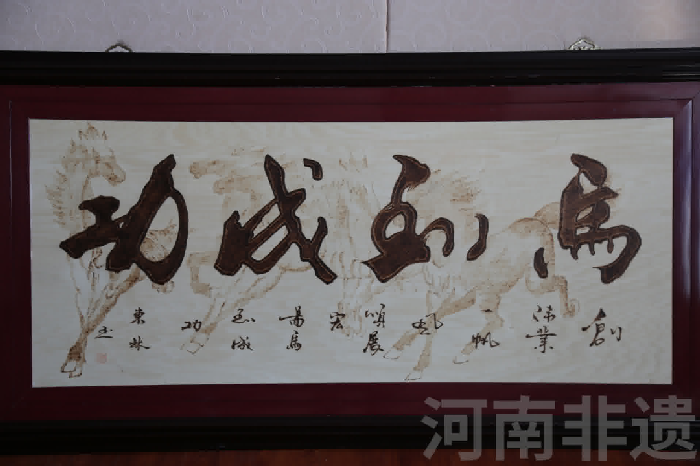 馬到成功
創偉業一帆風順展宏圖馬到成功
東林书
河南非遗